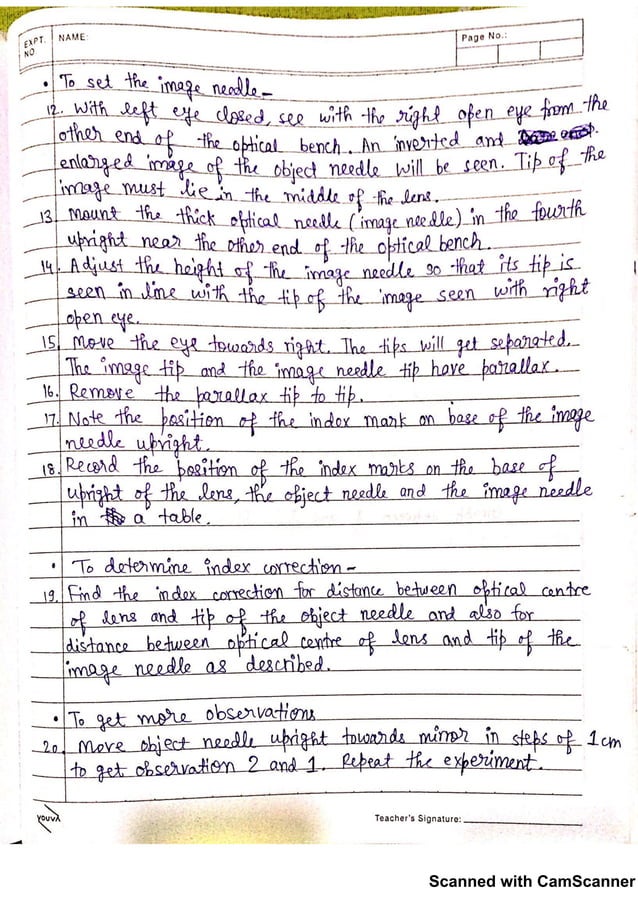 EXPT. NO
NAME:
Page No.:
• To set the image needle -
12. With left eye closed, see with the right open eye from the
other end of the optical bench. An inverted and
enlarged image of the object needle will be seen. Tip of the
image must lie in the middle of the lens.
13. Mount the thick optical needle (image needle) in the fourth
upright near the other end of the optical bench.
14. Adjust the height of the image needle so that its tip is
seen in line with the tip of the image seen with right
open eye.
15. Move the eye towards right. The tips will get separated.
The image tip and the image needle tip have parallax.
16. Remove the parallax tip to tip.
17. Note the position of the index mark on base of the image
needle upright.
18. Record the position of the index marks on the base of
upright of the lens, the object needle and the image needle
in a table.
• To determine index correction -
19. Find the index correction for distance between optical centre
of lens and tip of the object needle and also for
distance between optical centre of lens and tip of the
image needle as described.
• To get more observations
20. Move object needle upright towards mirror in steps of 1cm
to get observation 2 and 1. Repeat the experiment.
youva
Teacher's Signature:
Scanned with CamScanner